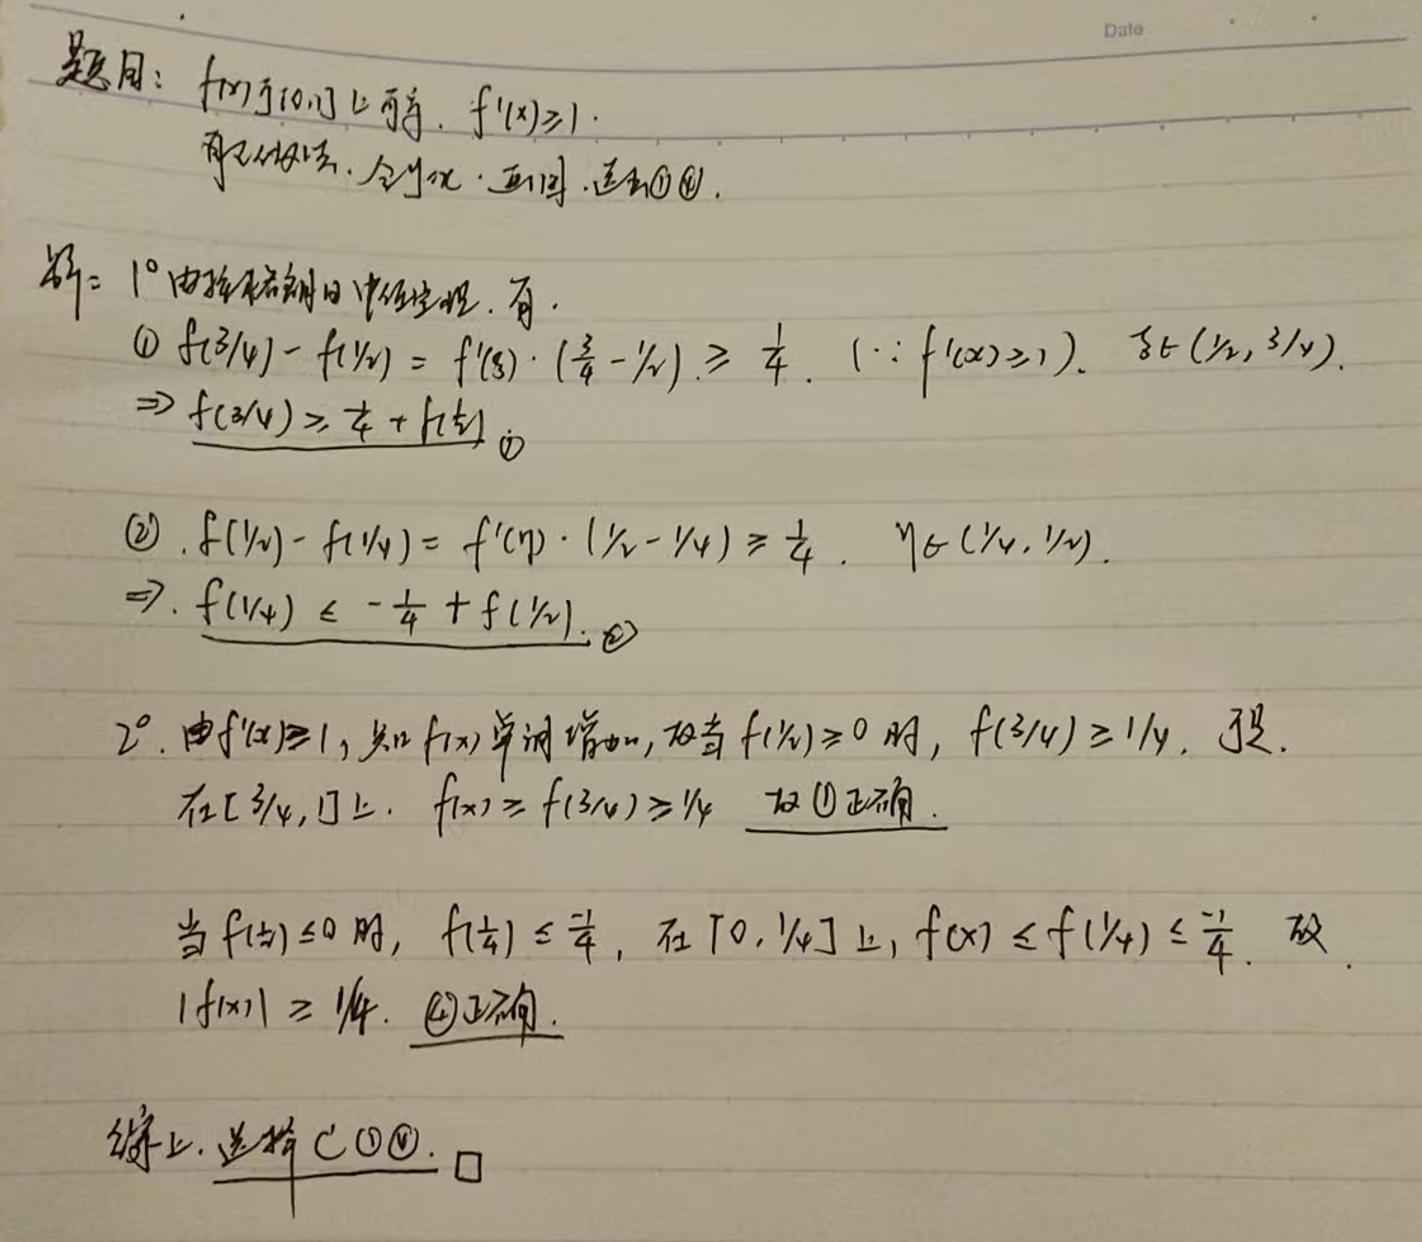 Date
题目: f(x)于[0,1]上可导. f'(x)≥1.
选出①④.
解: 1° 由拉格朗日中值定理. 有.
① f(3/4) - f(1/2) = f'(ξ)·(3/4 - 1/2) ≥ 1/4. (∵ f'(x)≥1). ξ∈(1/2, 3/4).
⇒ f(3/4) ≥ 1/4 + f(1/2) ①
②. f(1/2) - f(1/4) = f'(η)·(1/2 - 1/4) ≥ 1/4. η∈(1/4, 1/2).
⇒. f(1/4) ≤ -1/4 + f(1/2). ②
2°. 由f'(x)≥1, 知f(x)单调增加, 故当f(1/2)≥0时, f(3/4)≥1/4. 于是.
在[3/4, 1]上. f(x) ≥ f(3/4) ≥ 1/4 故①正确.
当f(1/2)≤0时, f(1/4) ≤ -1/4, 在[0, 1/4]上, f(x) ≤ f(1/4) ≤ -1/4. 故.
|f(x)| ≥ 1/4. ④正确.
综上. 选择C ①④. □